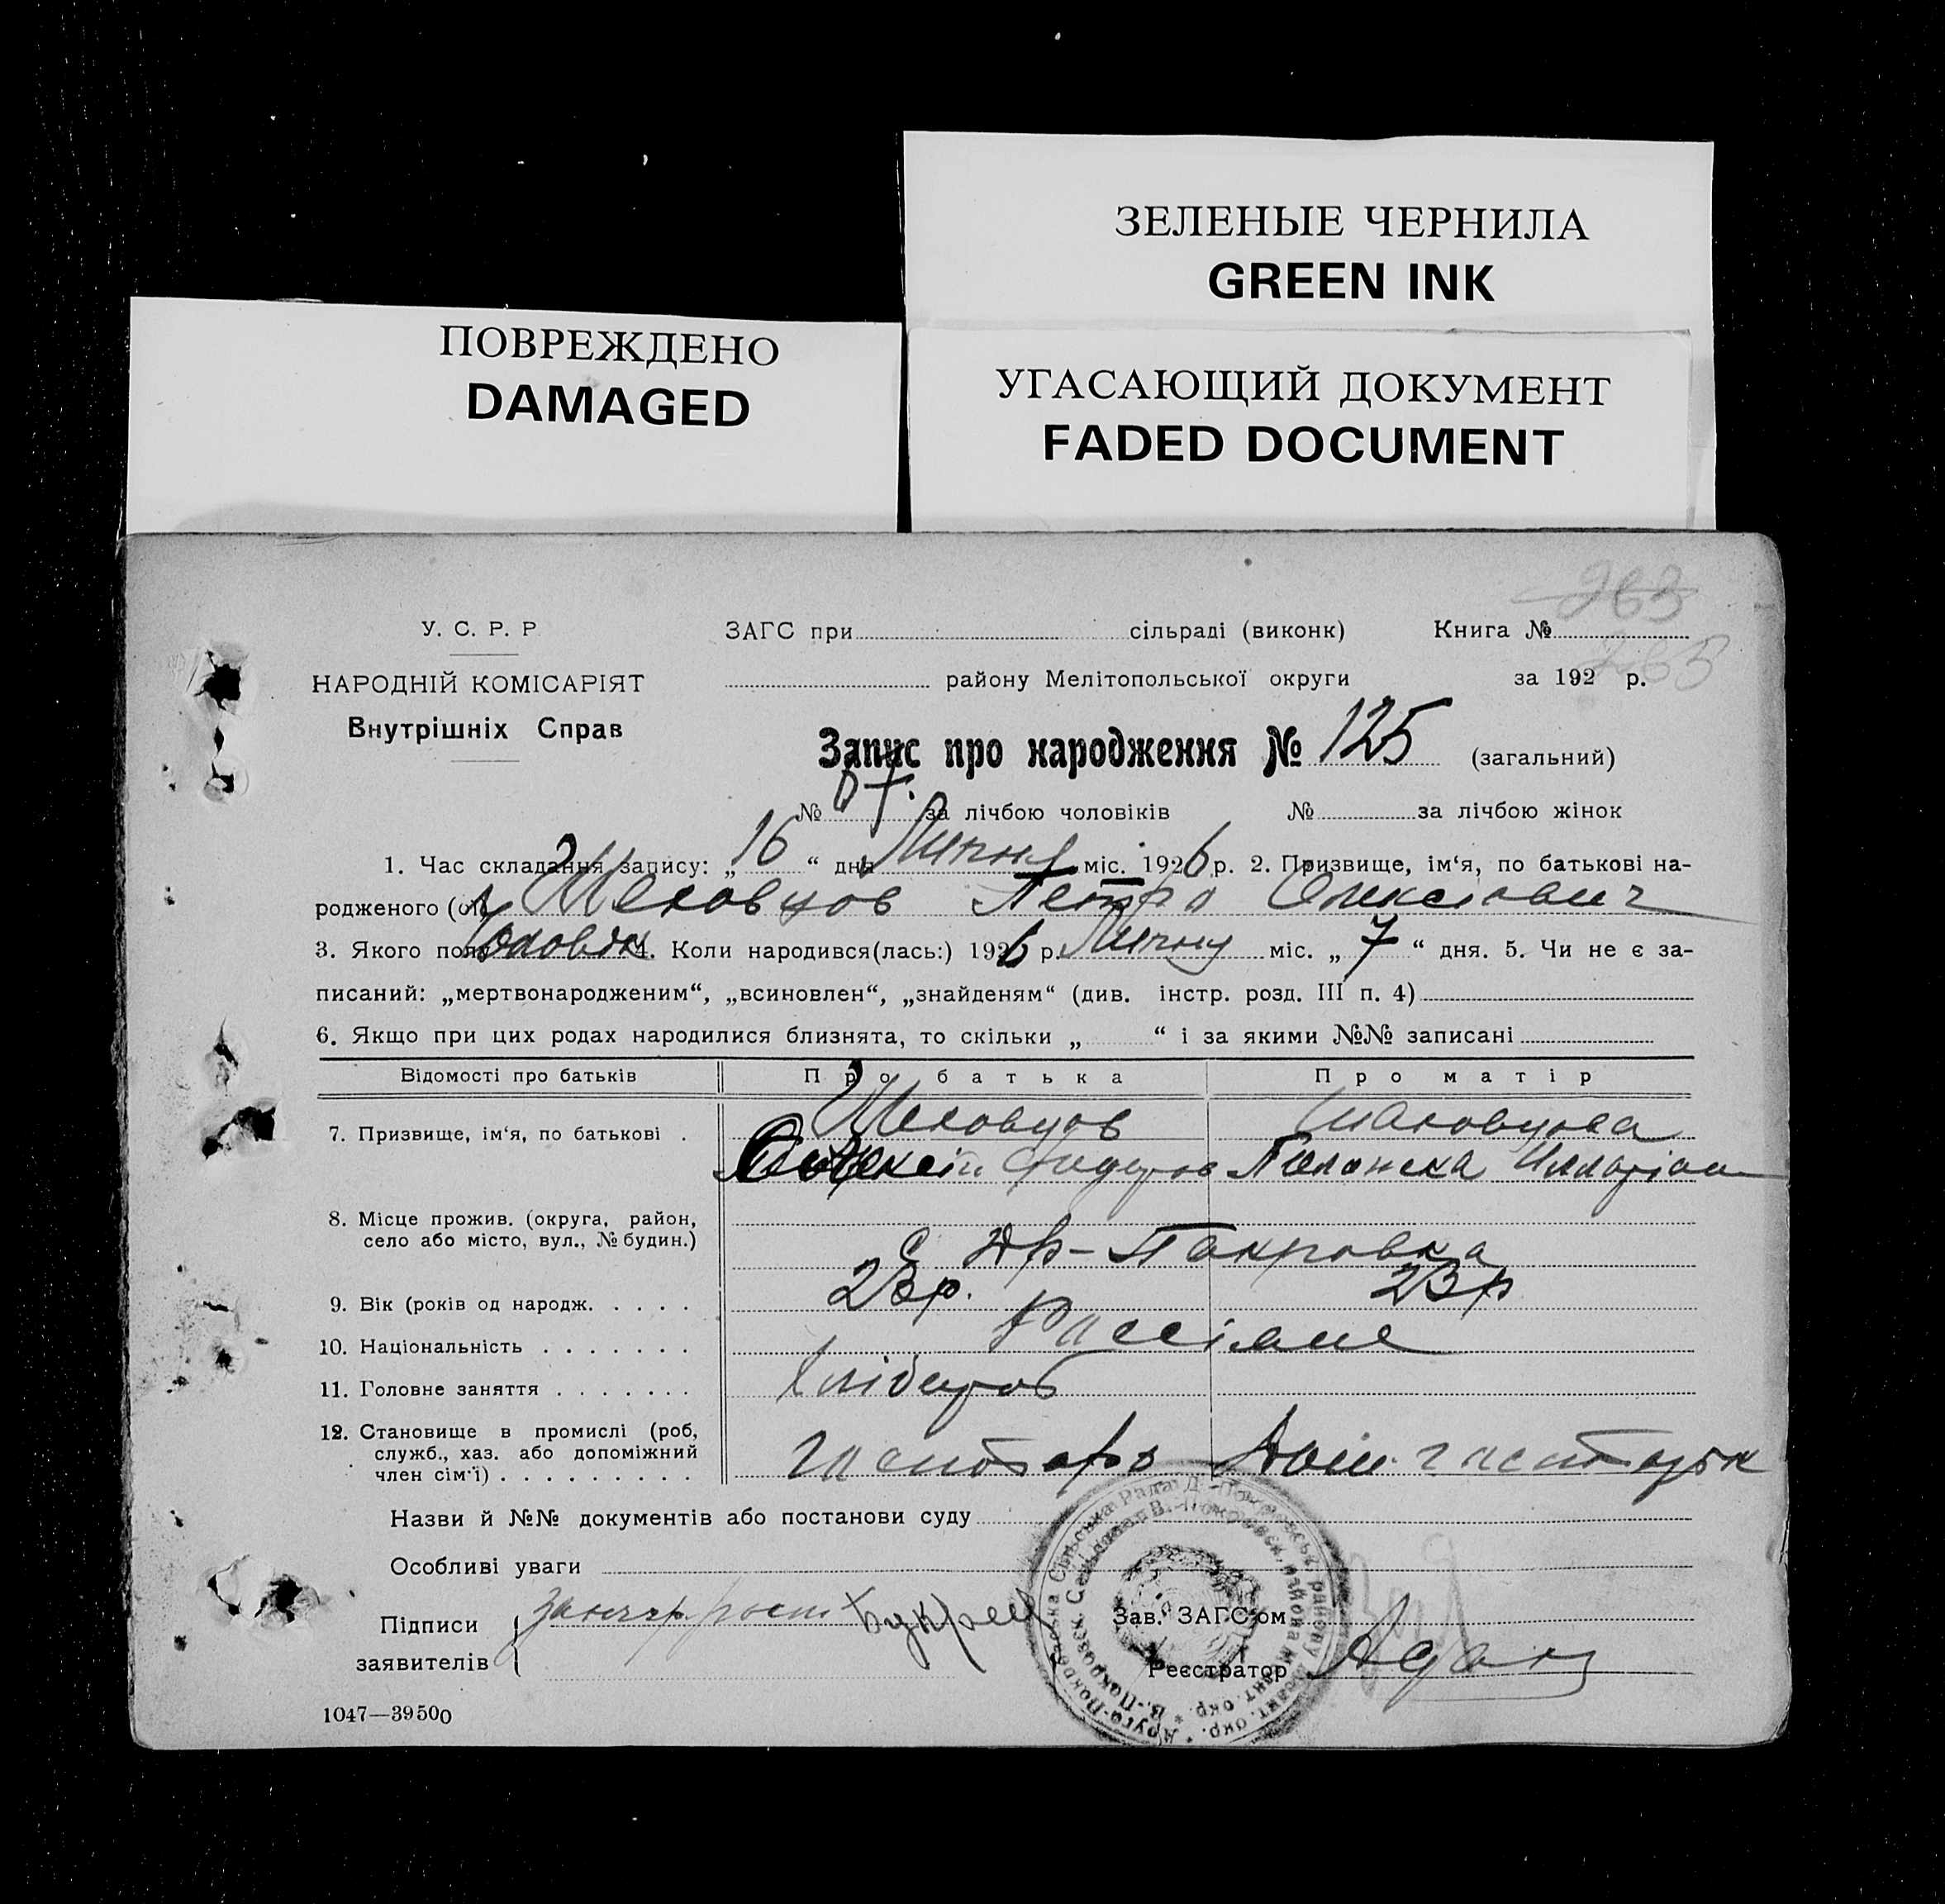 ЗЕЛЕНЫЕ ЧЕРНИЛА
GREEN INK
ПОВРЕЖДЕНО
DAMAGED
УГАСАЮЩИЙ ДОКУМЕНТ
FADED DOCUMENT
263
265
У. С. Р. Р
ЗАГС при сільраді (виконк) Книга №
НАРОДНІЙ КОМІСАРІЯТ
району Мелітопольської округи за 192 р.
Внутрішніх Справ
Запис про народження № 125 (загальний)
№ 67. за лічбою чоловіків № за лічбою жінок
1. Час складання запису: „16“ дня Липня міс. 1926 р. 2. Призвище, ім‘я, по батькові на-
родженого (ої) Шековцов Петро Олексіович
3. Якого полу Чоловік 4. Коли народився(лась:) 1926 р. Липня міс. „7“ дня. 5. Чи не є за-
писаний: „мертвонародженим“, „всиновлен“, „знайденям“ (див. інстр. розд. III п. 4)
6. Якщо при цих родах народилися близнята, то скільки „ “ і за якими №№ записані
Відомості про батьків Про батька Про матір
7. Призвище, ім‘я, по батькові . Шековцов Шаховцова
Олексій Пелажека Илларіон
8. Місце прожив. (округа, район,
село або місто, вул., № будин.)
с Др-Покровка
9. Вік (років од народж. . . . . 23р. 23р
10. Національність . . . . . . . Россіяне
11. Головне заняття . . . . . . . Хлібороб
12. Становище в промислі (роб,
служб., хаз. або допоміжний
член сім‘ї) . . . . . . . . . господарь Дом. господарк
Назви й №№ документів або постанови суду
Особливі уваги
Підписи
заявителів
Зав. ЗАГС‘ом
Реєстратор
1047—39500